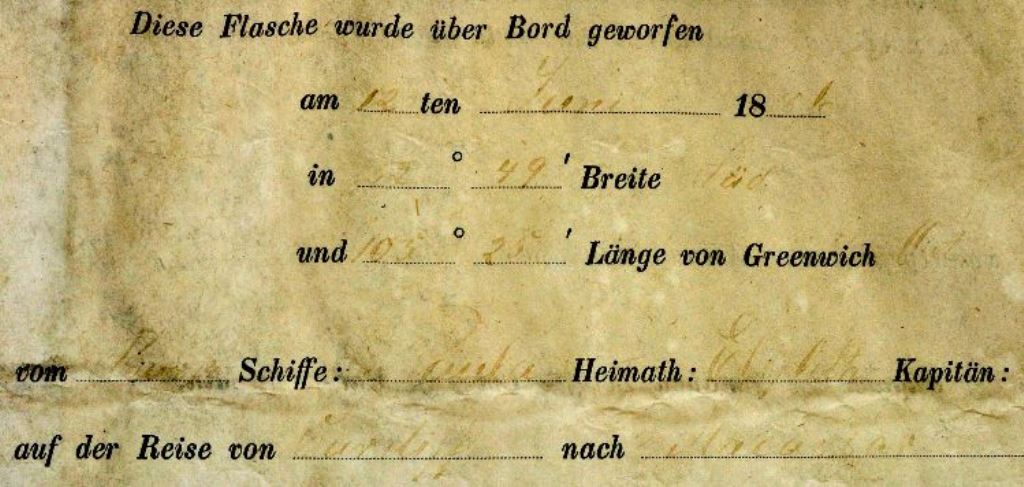 Diese Flasche wurde über Bord geworfen
am 12 ten Juni 18
in ° 49' Breite Süd
und 105° 25' Länge von Greenwich
vom Schiffe: Paula Heimath: Elsfleth Kapitän:
auf der Reise von Cardiff nach